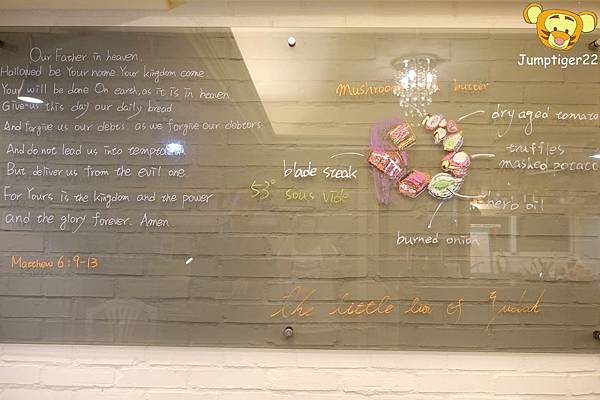 Our Father in heaven,
Hallowed be Your name. Your kingdom come
Your will be done On earth, as it is in heaven
Give us this day our daily bread
And forgive us our debts, as we forgive our debtors
And do not lead us into temptation
But deliver us from the evil one
For Yours is the kingdom and the power
and the glory forever. Amen.
Matthew 6:9-13
Mushroom butter
dry aged tomato
truffles
mashed potato
blade steak
53° sous vide
herb oil
burned onion
the little lion of Judah
Jumptiger22